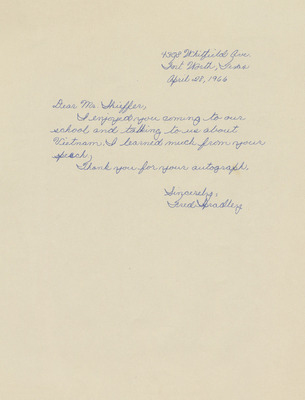 Whitfield Ave.
Fort Worth, Texas
April 28, 1966
Dear Mr. Shieffer,
I enjoyed you coming to our
school and talking to us about
Vietnam. I learned much from your
speech.
Thank you for your autograph.
Sincerely,
Bradley